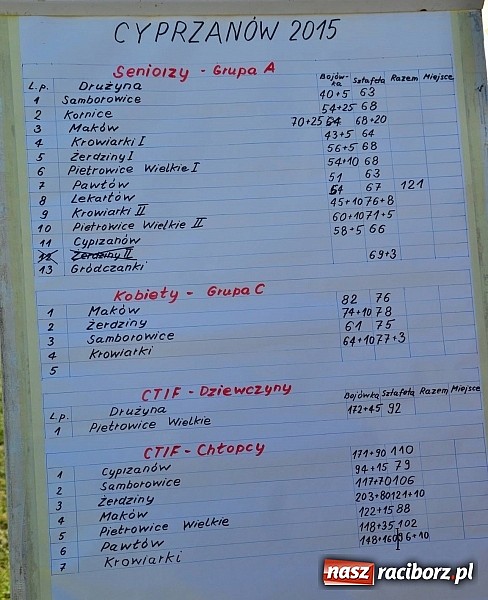 CYPRZANÓW 2015
Seniorzy - Grupa A
L.p. Drużyna Bojówka Sztafeta Razem Miejsce
1 Samborowice 40+5 63
2 Kornice 54+25 68
3 Maków 70+25 64 68+20
4 Krowiarki I 43+5 64
5 Żerdziny I 56+5 68
6 Pietrowice Wielkie I 54+10 68
7 Pawłów 51 63
8 Lekartów 54 67 121
9 Krowiarki II 45+10 76+8
10 Pietrowice Wielkie II 60+10 71+5
11 Cyprzanów 58+5 66
12 Żerdziny II
13 Gródczanki 69+3
Kobiety - Grupa C
1 Maków 82 76
2 Żerdziny 74+10 78
3 Samborowice 61 75
4 Krowiarki 64+10 77+3
5
CTIF - Dziewczyny
L.p. Drużyna Bojówka Sztafeta Razem Miejsce
1 Pietrowice Wielkie 172+45 92
CTIF - Chłopcy
1 Cyprzanów 171+90 110
2 Samborowice 94+15 79
3 Żerdziny 117+70 106
4 Maków 203+80 121+10
5 Pietrowice Wielkie 122+15 88
6 Pawłów 118+35 102
7 Krowiarki 148+160
nasz raciborz.pl